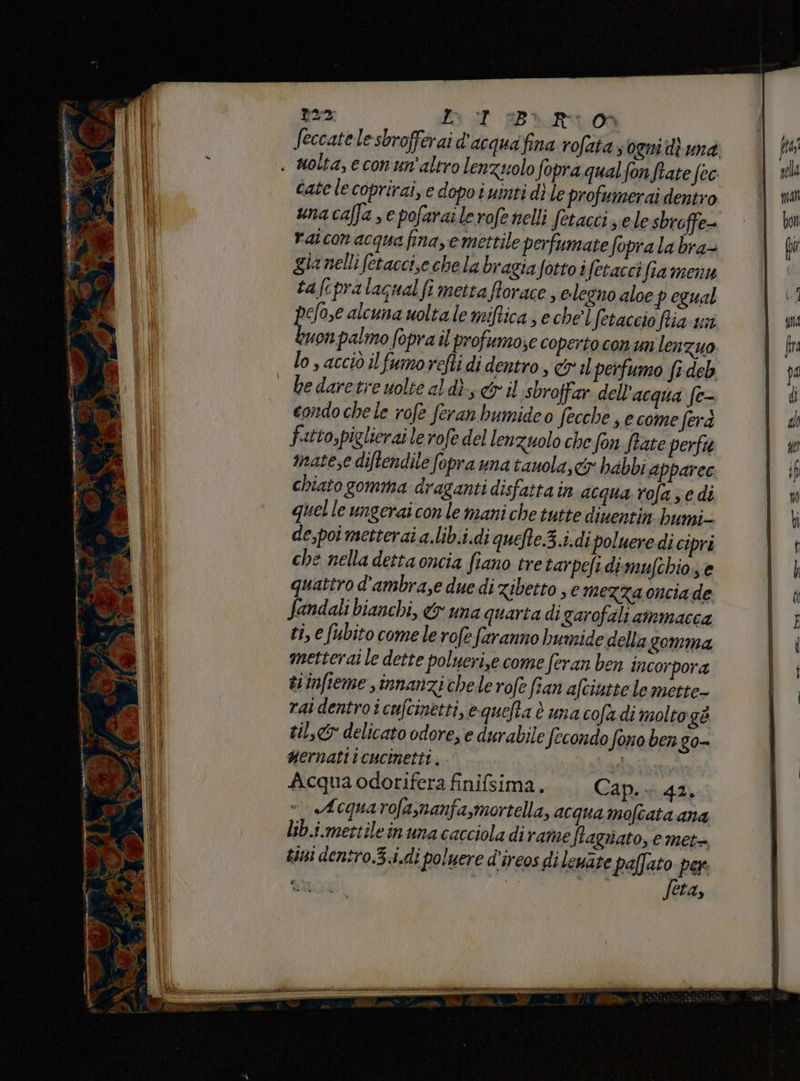 122 L I B R O
ſeccate le sbrofferai d'acqua fina roſata, ogni dì una
uolta, e con un'altro lenzuolo ſopra qual ſon ſtate ſec
cate le coprirai, e dopo i uinti dì le profumerai dentro
una caſſa, e poſarai le roſe nelli ſetacci, e le sbroffe-
rai con acqua fina, e mettile perfumate ſopra la bra-
gia nelli ſetacci, e che la bragia ſotto i ſetacci ſia menu
ta ſopra laqual ſi metta ſtorace, e legno aloe p egual
peſo, e alcuna uolta le miſtica, e che'l ſetaccio ſtia un
buon palmo ſopra il profumo, e coperto con un lenzuo
lo, acciò il fumo reſti di dentro, & il perfumo ſi deb
be dare tre uolte al dì, & il sbroffar dell'acqua ſe-
condo che le roſe ſeran humide o ſecche, e come ſerà
fatto, piglierai le roſe del lenzuolo che ſon ſtate perfu
mate, e diſtendile ſopra una tauola, & habbi apparec
chiato gomma draganti disfatta in acqua roſa, e di
quelle ungerai con le mani che tutte diuentin humi-
de, poi metterai a.lib.i.di queſte.3.i.di poluere di cipri
che nella detta oncia ſiano tre tarpeſi di muſchio, e
quattro d'ambra, e due di zibetto, e mezza oncia de
ſandali bianchi, & una quarta di garofali ammacca
ti, e ſubito come le roſe ſaranno humide della gomma
metterai le dette polueri, e come ſeran ben incorpora
ti inſieme, innanzi che le roſe ſian aſciutte le mette-
rai dentro i cuſcinetti, e queſta è una coſa di molto gē
til, & delicato odore, e durabile ſecondo ſono ben go-
uernati i cucinetti.
Acqua odorifera finiſsima. Cap. 42.
Acqua roſa, nanfa, mortella, acqua moſcata ana
lib.i.mettile in una cacciola di rame ſtagnato, e met-
tini dentro.3.i.di poluere d'ireos di leuate paſſato per
ſeta,